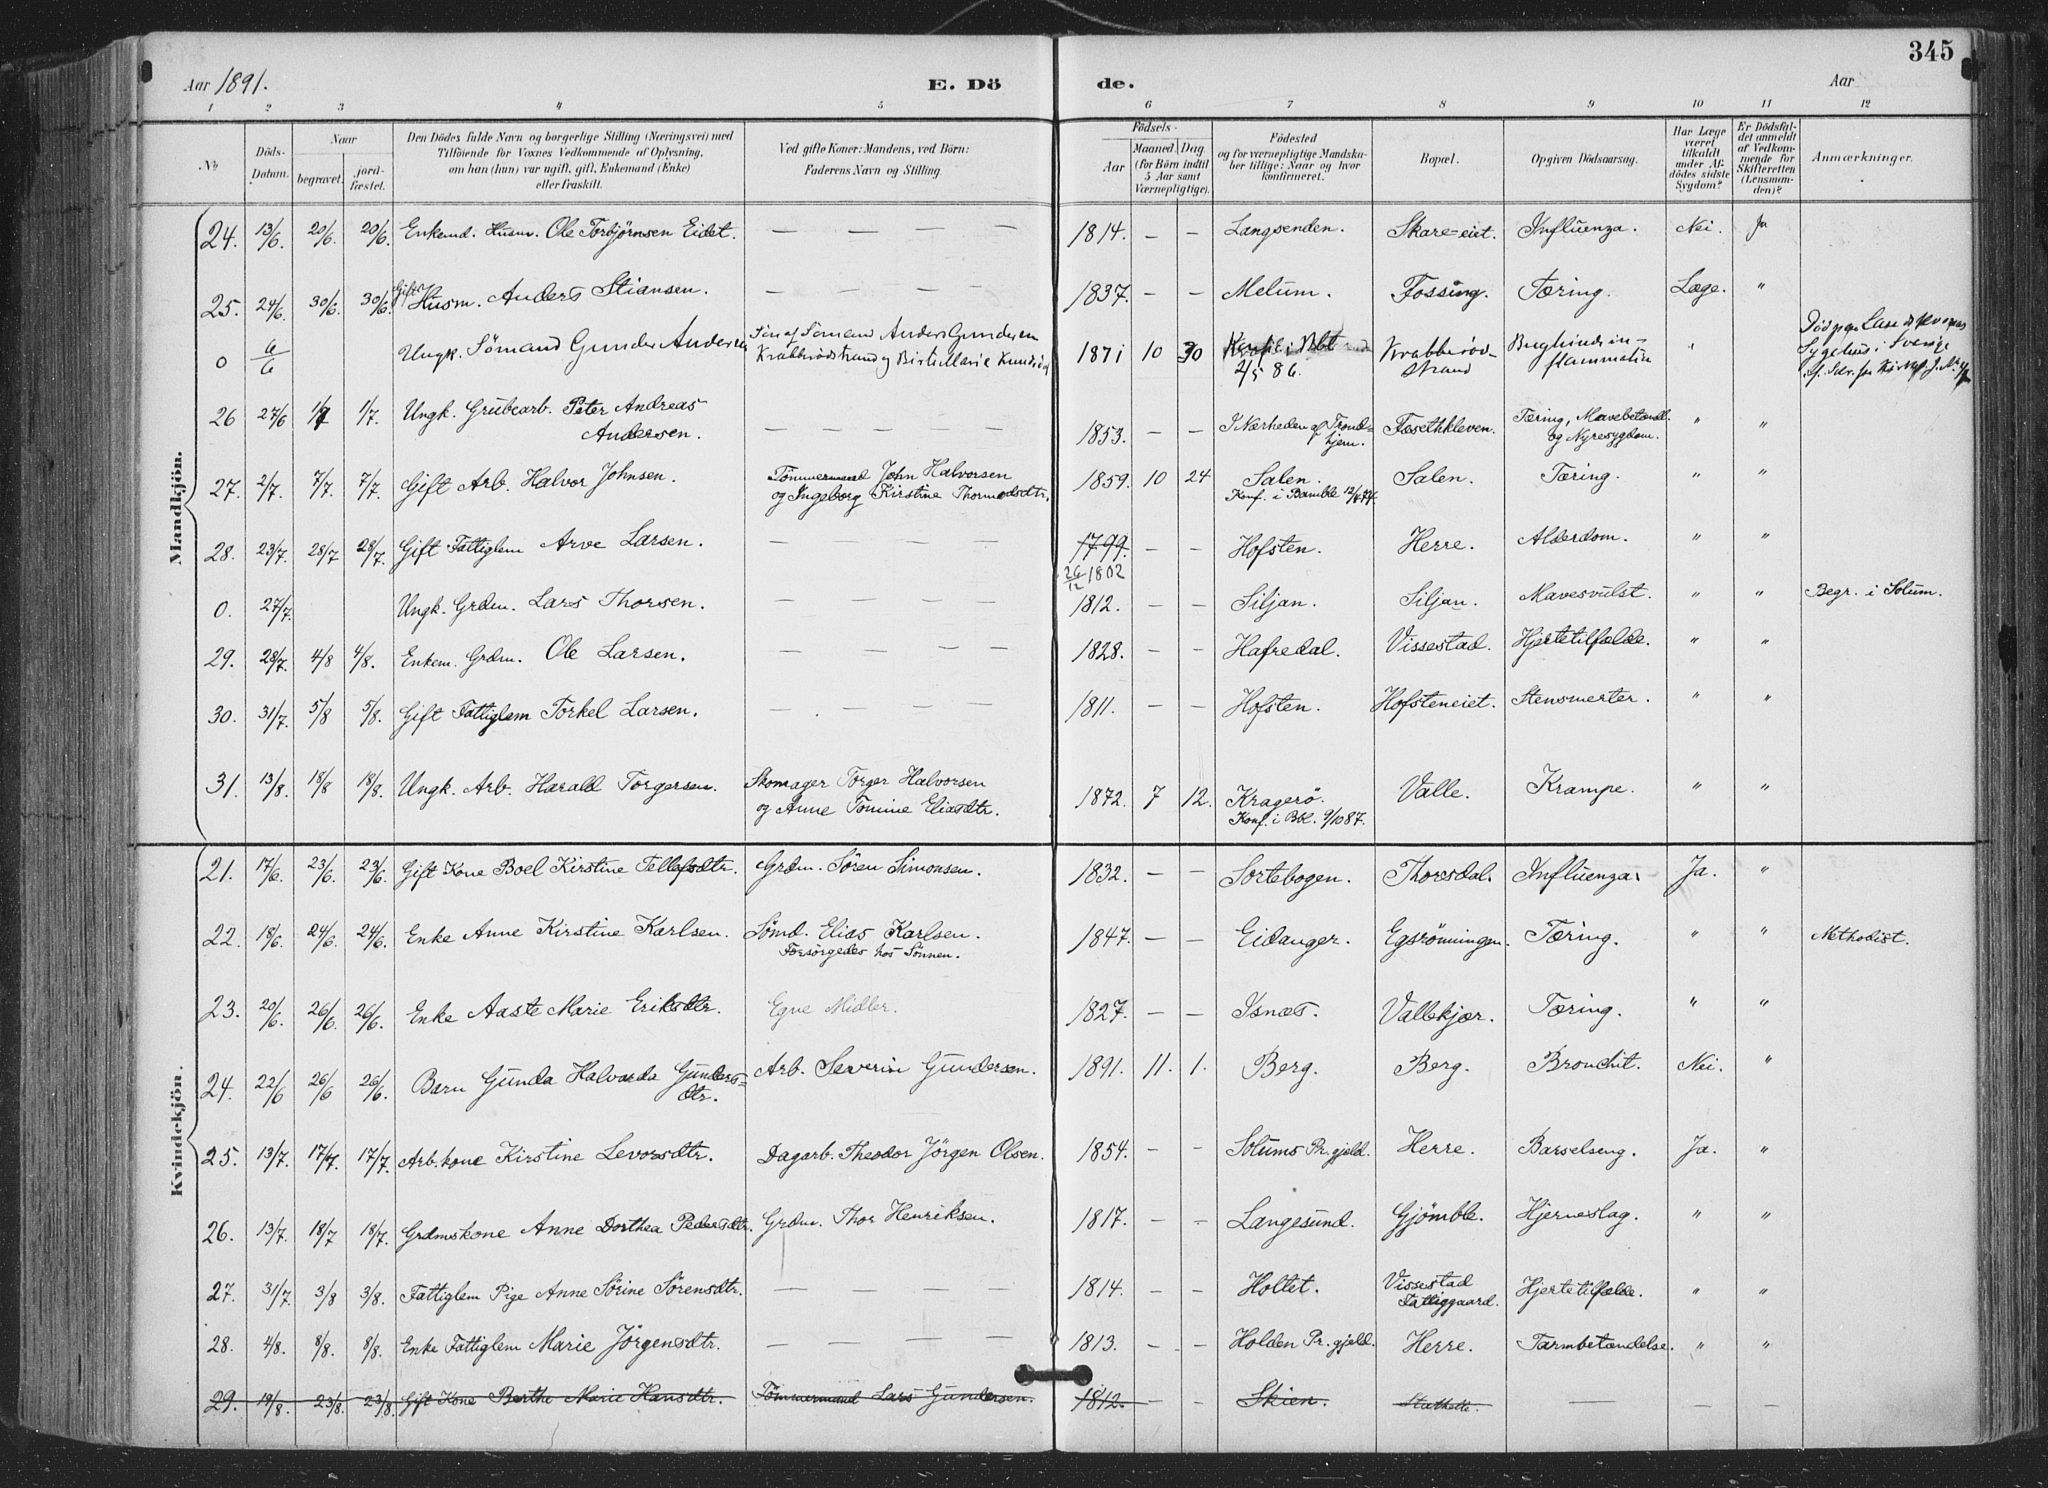 345
Aar 1891. E. Dö de. Aar
1 2 3 4 5 6 7 8 9 10 11 12
No
Döds-Datum.
Naar
begravet.
jordfæstet.
Den Dödes fulde Navn og borgerlige Stilling (Næringsvei) med
Tilföiende for Voxnes Vedkommende af Oplysning,
om han (hun) var ugift, gift, Enkemand (Enke)
eller fraskilt.
Ved gifte Koner: Mandens, ved Börn:
Faderens Navn og Stilling.
Födsels-
Aar
Maaned. Dag.
(for Börn indtil
5 Aar samt
Værnepligtige).
Födested
og for værnepligtige Mandskaber tillige: Naar og hvor
konfirmeret.
Bopæl.
Opgiven Dödsaarsag.
Har Læge
været
tilkaldt
under Afdödes sidste
Sygdom?
Er Dödsfaldet anmeldt
af Vedkommende for
Skifteretten
(Lensmanden)?
Anmærkninger.
Mandkjön.
24. 13/6. 20/6. 20/6. Enkemd. Husm. Ole Torbjørnsen Eidet. — — — — 1814. — — Langsenden. Skare-eiet. Influenza. Nei. Ja
25. 24/6. 30/6. 30/6. Gift Husm. Anders Stiansen. — — — — 1837. — — Melum. Fossing. Tæring. Læge. "
0 6/6 Ungk. Sömand Gunder Andersen Sön af Sömand Anders Gundersen
Krabberödstrand og Birte Marie Knudsd. 1871 10 30 2/5 86. Krabberöd-
strand Bughindein-
flammation "
Sygehus i Sverige
26 27/6 1/7 1/7. Ungk. Grubearb. Peter Andreas
Andersen. — — — — 1853. — — I Nærheden af Trond-
hjem. Fæsethkleven. Tæring, Mavebetændl.
og Nyresygdom. " "
27. 2/7. 7/7. 7/7. Gift Arb. Halvor Johnsen. Tömmermand John Halvorsen
og Ingeborg Kirstine Thormodsdtr. 1859. 10 24 Salen.
Konf. i Bamble Salen. Tæring. " "
28. 23/7. 28/7 28/7. Gift Fattiglem Arve Larsen. — — — — 1799. — — Hofsten. Herre. Alderdom. " "
26/12 1802
0. 27/7. Ungk. Grdm. Lars Thorsen. — — — — 1812. — — Siljan. Siljan. Mavesvulst. " " Begr. i Solum.
29. 28/7. 4/8 4/8. Enkem. Grdm. Ole Larsen. — — — — 1828. — — Hafredal. Vissestad. Hjertetilfælde. " "
30. 31/7. 5/8 5/8. Gift Fattiglem Torkel Larsen. — — — — 1811. — — Hofsten. Hofsteneiet. Stensmerter. " "
31. 13/8. 18/8 18/8. Ungk. Arb. Harald Torgersen. Skomager Torger Halvorsen
og Anne Tomine Eliasdtr. 1872. 7 12. Kragerö.
Konf. i Bbl. 9/10 87. Valle. Krampe. " "
Kvindekjön.
21. 17/6. 23/6. 23/6. Gift Kone Boel Kirstine Tellefsdtr Grdm. Sören Simonsen. 1832. — — Sortebogen. Thorsdal. Influenza. Ja. "
22. 18/6. 24/6. 24/6. Enke Anne Kirstine Karlsen. Sömd. Elias Karlsen.
Forsörgedes hos Sönnen. 1847. — — Eidanger. Egsrönningen. Tæring. " " Methodist.
23. 20/6. 26/6. 26/6. Enke Aaste Marie Eriksdtr. Egne Midler. 1827. — — Isnæs. Vallekjær. Tæring. " "
24. 22/6 26/6 26/6. Barn Gunda Halvarda Gunders-
dtr. Arb. Severin Gundersen. 1891. 11. 1. Berg. Berg. Bronchit. Nei. "
25. 13/7. 17/7. 17/7. Arb.kone Kirstine Levorsdtr. Dagarb. Theodor Jörgen Olsen. 1854. — — Solums Pr.gjeld. Herre. Barselseng. Ja. "
26. 13/7. 18/7 18/7. Grdmskone Anne Dorthea Pedersdtr. Grdm. Thor Henriksen. 1817. — — Langesund. Gjömble. Hjerneslag. " "
27. 31/7. 3/8 3/8. Fattiglem Pige Anne Sörine Sörensdtr. — — — — 1814. — — Holtet. Vissestad
Fattiggaard. Hjertetilfælde. " "
28. 4/8. 8/8. 8/8. Enke Fattiglem Marie Jörgensdtr. — — — — 1813. — — Holden Pr.gjeld. Herre. Tarmbetændelse. " "
29. 19/8. 23/8. 23/8. Gift Kone Berthe Marie Hansdtr. Tömmermand Lars Gundersen. 1812. — — Skien. Stathelle. — — —